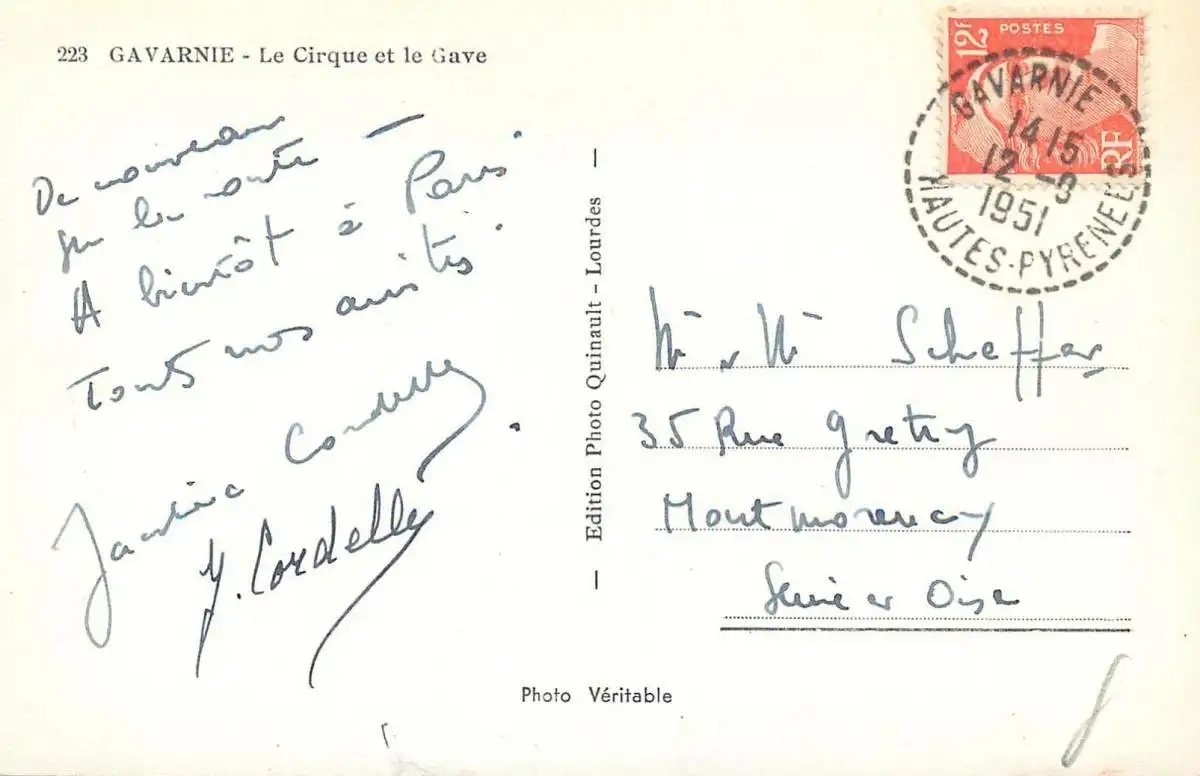 223 GAVARNIE - Le Cirque et le Gave
De nouveau
sur la route —
A bientôt à Paris.
Toutes nos amitiés.
Cordelle
Y. Cordelle
— Edition Photo Quinault - Lourdes —
12F
POSTES
RF
GAVARNIE
14 15
12 -9
1951
HAUTES-PYRENEES
Mr & Mme Scheffer
35 Rue Gretry
Montmorency
Seine et Oise
Photo Véritable